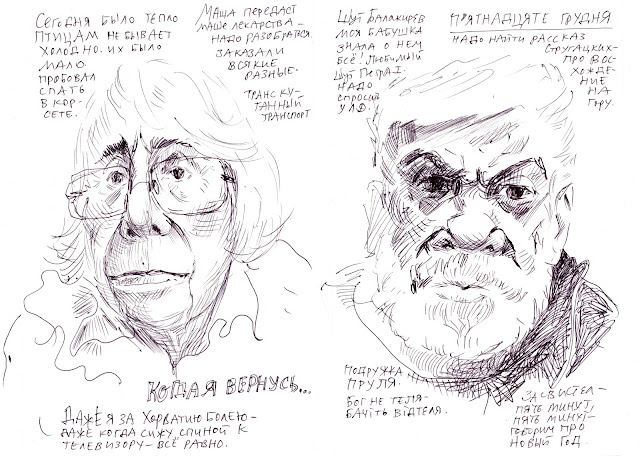 Сегодня было тепло
птицам не бывает
холодно. Их было
мало.
Пробовал
спать
в кор-
сете.
Маша передаст
Маше лекарства –
надо разобраться.
Заказали
всякие
разные.
Транску-
танный
транспорт
Шут Балакирев
моя бабушка
знала о нём
всё! Любимый
шут Петра I.
Надо
спросить
у Л.D.
П'ятнадцяте грудня
Надо найти рассказ
Стругацких –
про вос-
хожде-
ние
на
гору.
Когда я вернусь...
Даже я за Хорватию болею –
даже когда сижу спиной к
телевизору – всё равно.
Подружка
Пруля.
Бог не теля –
бачіть відтеля.
Засвистел –
пять минут,
пять минут –
говорим про
Новый Год.